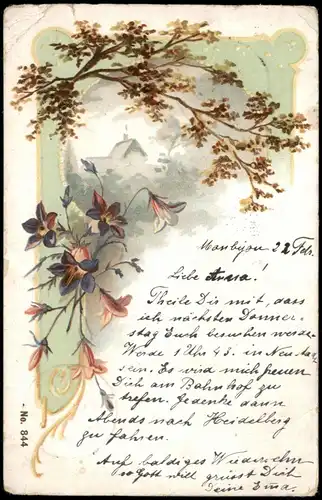 Monbijou 22 Feb.
Liebe Anna!
Theile Dir mit, dass
ich nächsten Donner-
stag Euch besuchen werde
Werde 1 Uhr 43. in
sein. Es wird mich freuen
Dich am Bahnhof zu
trefen. Gedenke dann
Abends nach Heidelberg
zu fahren.
Auf baldiges Wiedersehn
so Gott will grüsst Dich
deine Ema.
- No. 844